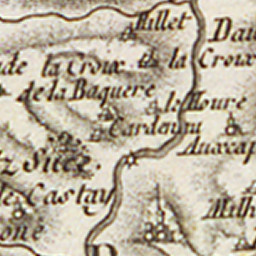 Millet
Dau
de la Croix
la Croix
de la Baquere
le Houre
Cardenau
Auxcap
z Suez.
le Castay
Milh
one